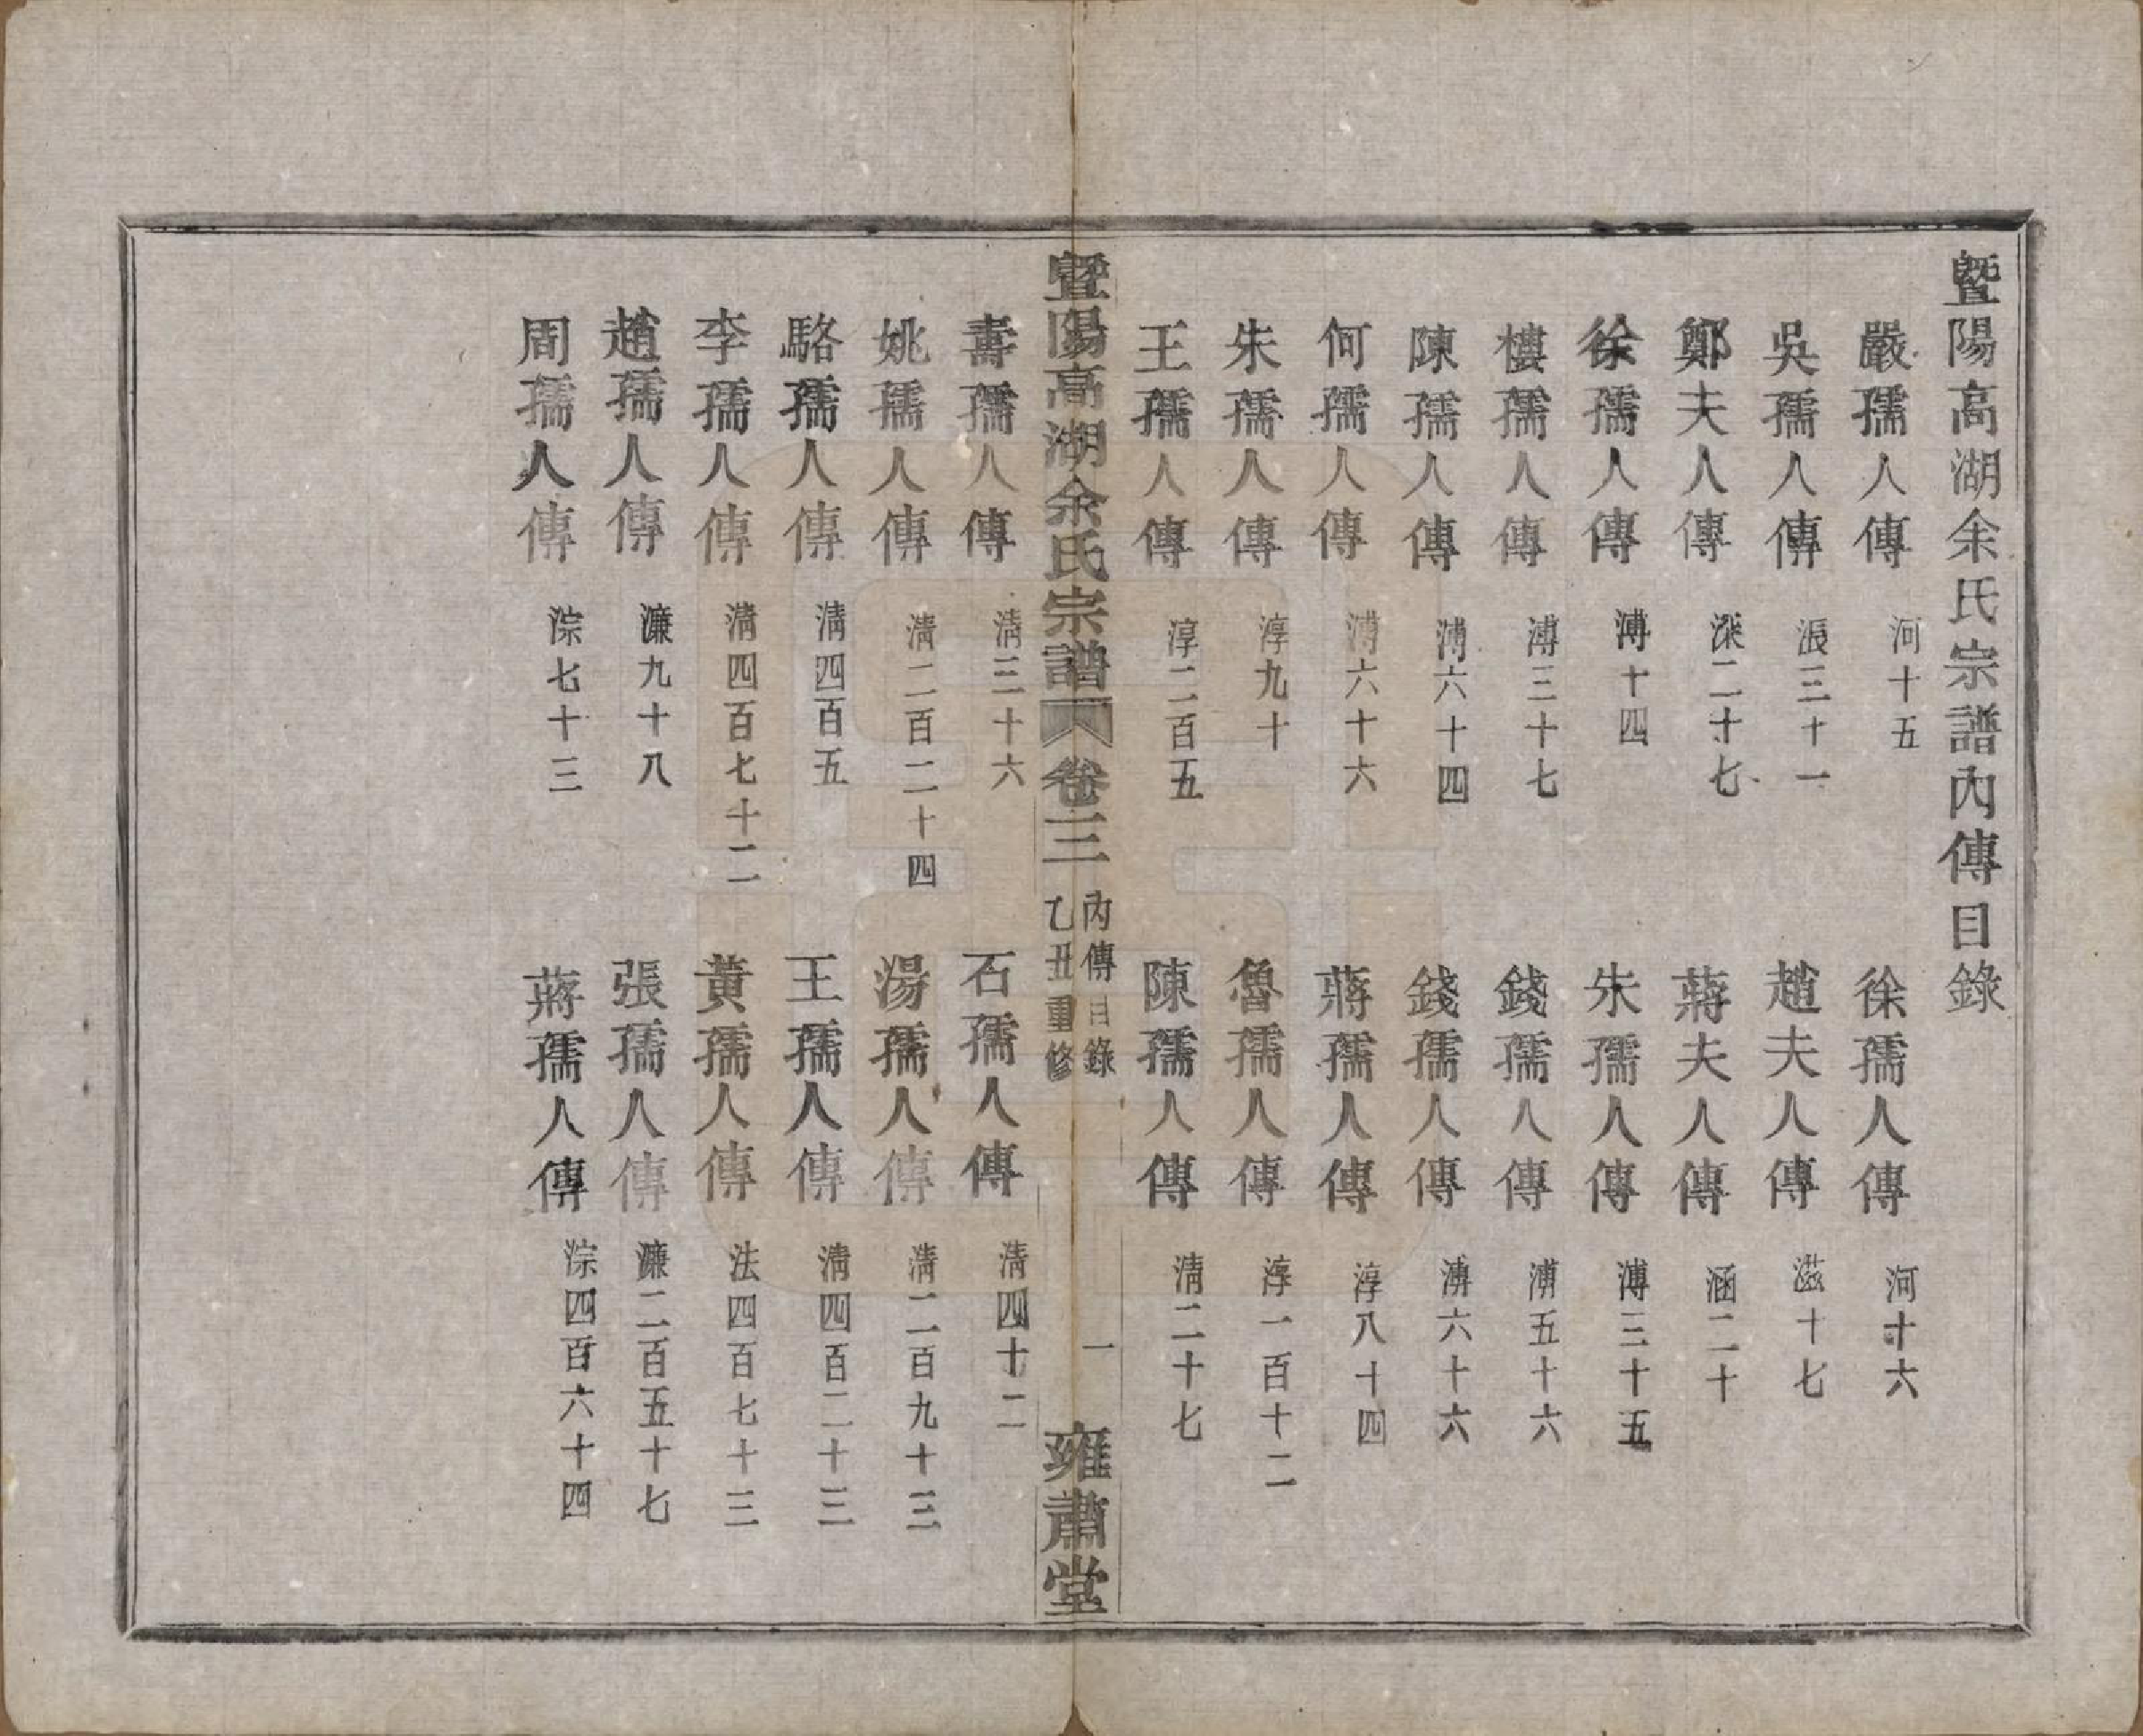 暨陽高湖余氏宗譜內傳目錄
嚴孺人傳 河十五 徐孺人傳 河十六
吳孺人傳 漲三十一 趙夫人傳 滋十七
鄭夫人傳 深二十七 蔣夫人傳 涵二十
徐孺人傳 溥十四 朱孺人傳 溥三十五
樓孺人傳 溥三十七 錢孺人傳 溥五十六
陳孺人傳 溥六十四 錢孺人傳 溥六十六
何孺人傳 溥六十六 蔣孺人傳 淳八十四
朱孺人傳 淳九十 魯孺人傳 淳一百十二
王孺人傳 淳二百五 陳孺人傳 清二十七
暨陽高湖余氏宗譜 卷三 內傳目錄 乙丑重修 一 雍肅堂
壽孺人傳 清三十六 石孺人傳 清四十二
姚孺人傳 清二百二十四 湯孺人傳 清二百九十三
駱孺人傳 清四百五 王孺人傳 清四百二十三
李孺人傳 清四百七十二 黃孺人傳 法四百七十三
趙孺人傳 濂九十八 張孺人傳 濂二百五十七
周孺人傳 淙七十三 蔣孺人傳 淙四百六十四